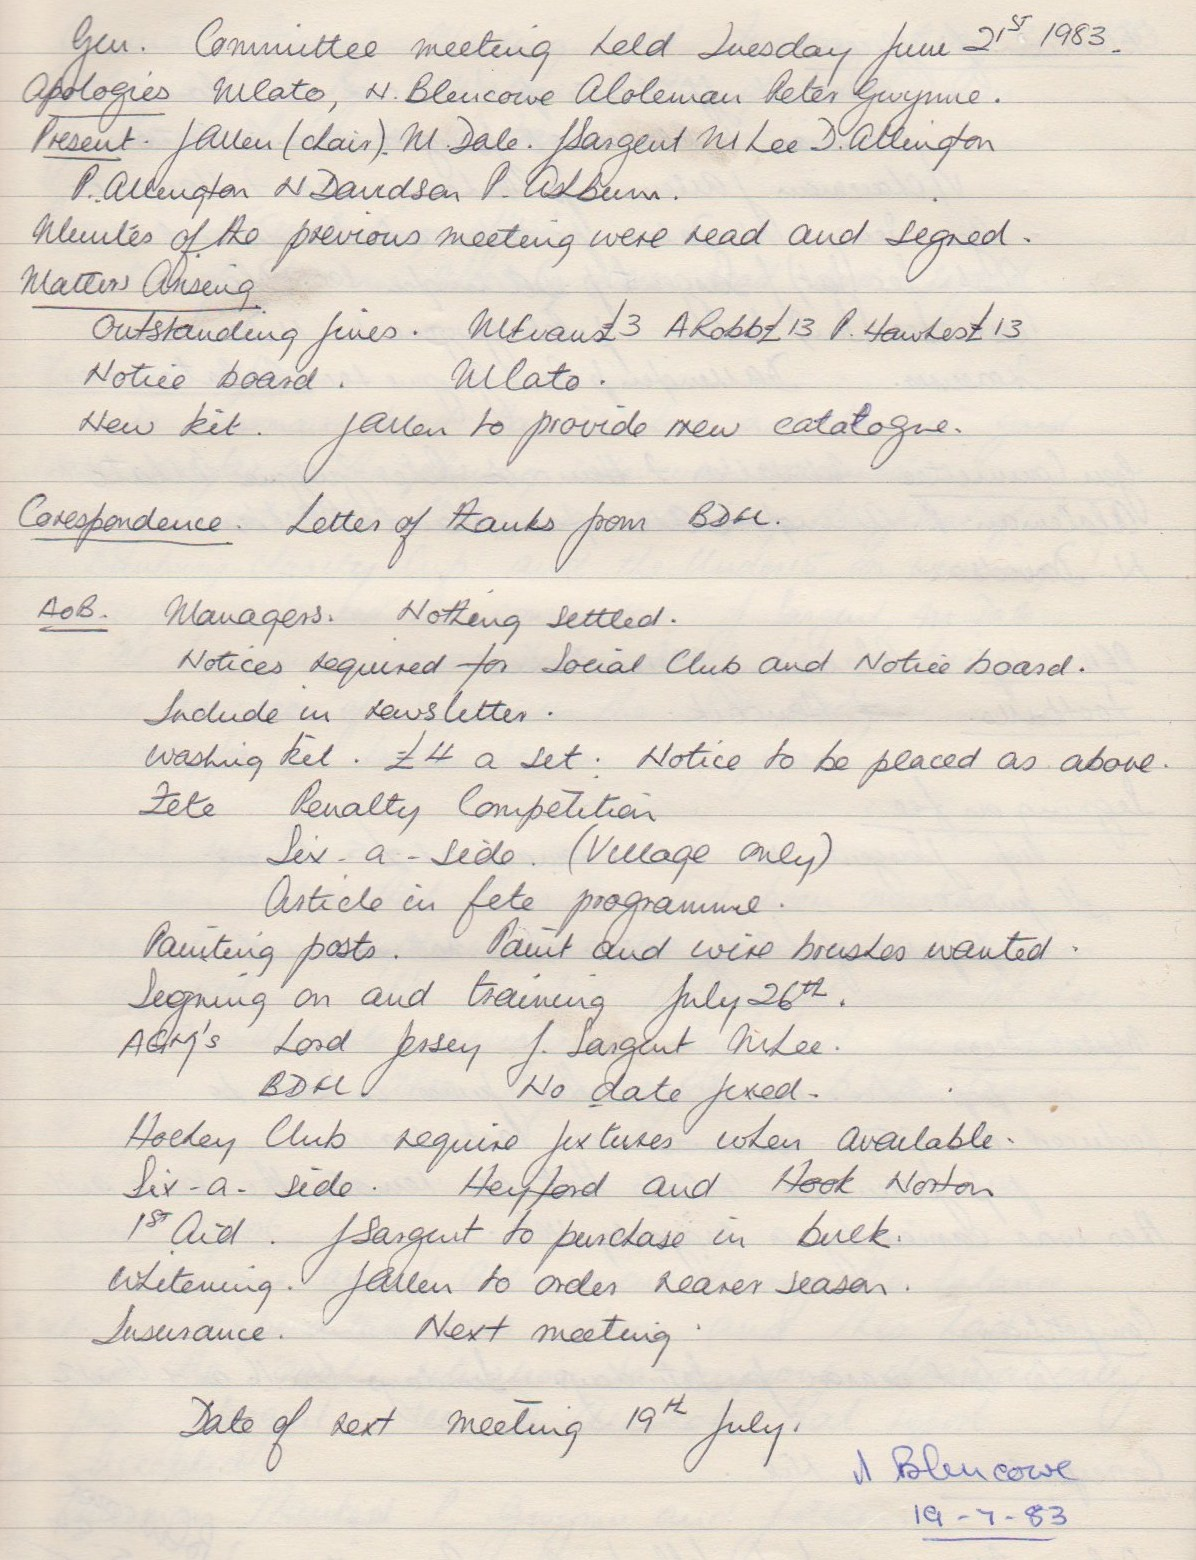 Gen. Committee meeting held Tuesday June 21ST 1983.
Apologies M Cato, N. Blencowe A Coleman Peter Gwynne.
Present. J Allen (chair). M. Dale. J Sargent M Lee D. Allington
P. Allington N Davidson P. Ashburn.
Minutes of the previous meeting were read and signed.
Matters Arising
Outstanding fines. M Evans £3 A Robb £13 P. Hawkes £13
Notice board. M Cato.
New kit. J Allen to provide new catalogue.
Corespondence. Letter of thanks from BDFL.
AoB. Managers. Nothing settled.
Notices required for Social Club and Notice board.
Include in newsletter.
Washing kit. £4 a set. Notice to be placed as above.
Fete Penalty Competition
Six-a-side. (Village only)
Article in fete programme.
Painting posts. Paint and wire brushes wanted.
Signing on and training July 26th.
AGM's Lord Jersey J. Sargent M Lee.
BDFL No date fixed.
Hockey Club require fixtures when available.
Six-a-side. Heyford and Hook Norton
1ST Aid. J Sargent to purchase in bulk.
Whitening. J Allen to order nearer season.
Insurance. Next meeting.
Date of next meeting 19th July.
N Blencowe
19-7-83